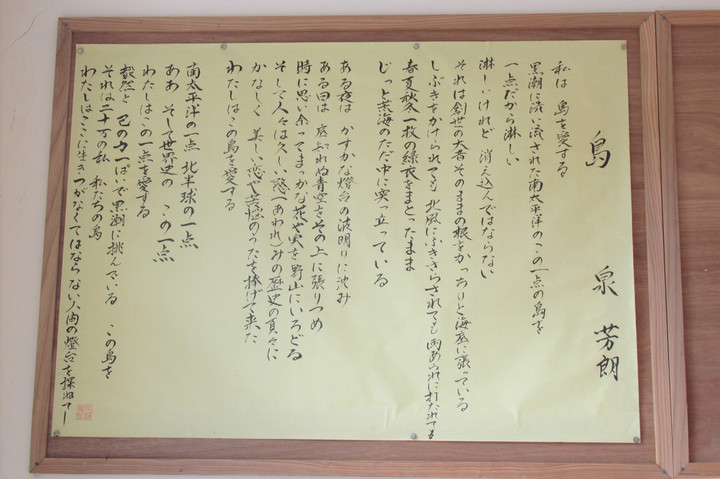 島
泉 芳朗
私は 島を愛する
黒潮に洗い流された南太平洋のこの一点の島を
一点だから淋しい
淋しいけれど 消え込んではならない
それは創世の大昔そのままの根をかっちりと海底に張っている
しぶきをかけられても 北風にふきさらされても 雨あられに打たれても
春夏秋冬一枚の緑衣をまとったまま
じっと荒海のただ中に突っ立っている
ある夜は かすかな燈台の波明りに沈み
ある日は 底ぬれぬ青空をその上に張りつめ
時に思い余ってまっかな花や実を野山にいろどる
そして人々は久しい愁(あわれ)みの歴史の頁々に
かなしく 美しい恋や苦悩のうたを捧げて来た
わたしはこの島を愛する
南太平洋の一点 北半球の一点
ああ そして世界史の この一点
わたしはこの一点を愛する
毅然と 己の力一ぱいで黒潮に挑んでいる この島を
それは二十万の私 私たちの島
わたしはここに生きつがなくてはならない人間の燈台を探ねて